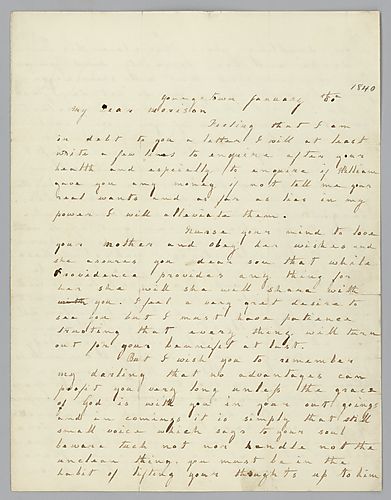 1840
Youngstown January 5
My dear Morison
Feeling that I am
in debt to you a letter I will at least
write a few lines to enquire after your
health and especially to enquire if William
gave you any money if not tell me your
real wants and as far as has in my
power I will alleviate them.
Nurse your mind to love
your mother and obay her wishes and
she asures you dear son that while
Providence provides any thing for
her she will she will share with
with you. I feel a very gret desire to
see you but I must have patience
trusting that every thing will turn
out for your at last.
But I wish you to remember
my darling that no advantages can
profit you very long unless the grace
of God is with you in your out goings
and in comings it is simply that still
small voice which says to your soul
beware tuch not nor handle not the
unclean thing. you must be in the
habit of lifting your thoughts up to him